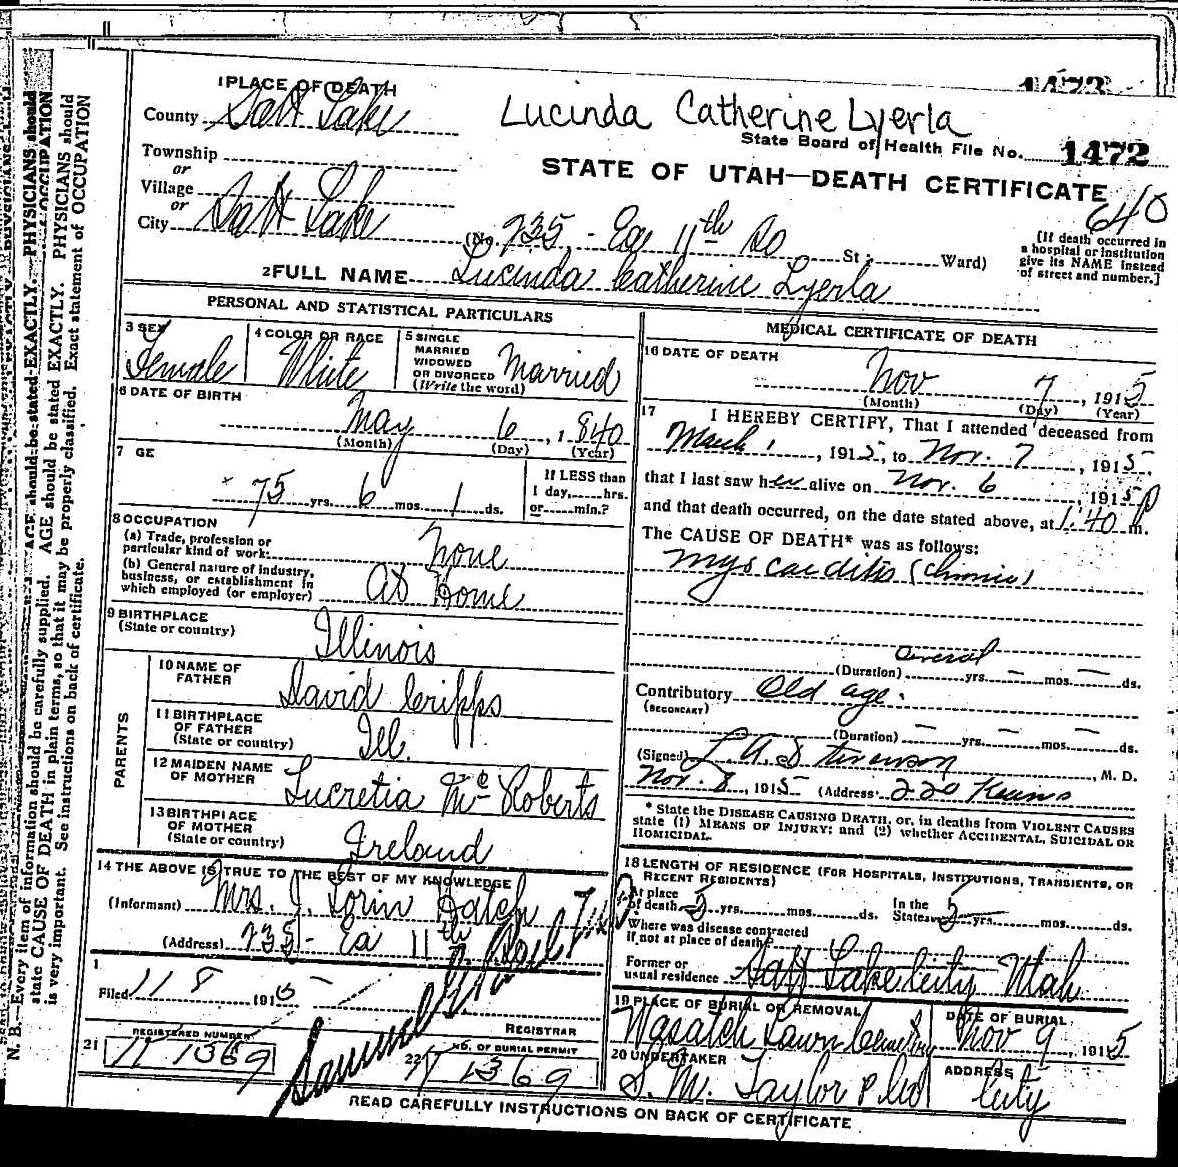 1473
1 PLACE OF DEATH
County Salt Lake
Lucinda Catherine Lyerla
State Board of Health File No. 1472
Township
or
Village
or
City Salt Lake
STATE OF UTAH—DEATH CERTIFICATE
640
(No. 235 - Ea 11th So St.; Ward)
[If death occurred in
a hospital or institution
give its NAME instead
of street and number.]
2 FULL NAME Lucinda Catherine Lyerla
PERSONAL AND STATISTICAL PARTICULARS
3 SEX
Female
4 COLOR OR RACE
White
5 SINGLE
MARRIED
WIDOWED
OR DIVORCED
(Write the word)
Married
6 DATE OF BIRTH
May 6, 1840
(Month) (Day) (Year)
7 GE
75 yrs. 6 mos. 1 ds.
If LESS than
1 day, hrs.
or min.?
8 OCCUPATION
(a) Trade, profession or
particular kind of work: None
(b) General nature of industry,
business, or establishment in
which employed (or employer) At Home
9 BIRTHPLACE
(State or country) Illinois
PARENTS
10 NAME OF
FATHER David Cripps
11 BIRTHPLACE
OF FATHER
(State or country) Ill.
12 MAIDEN NAME
OF MOTHER Lucretia McRoberts
13 BIRTHPLACE
OF MOTHER
(State or country) Ireland
14 THE ABOVE IS TRUE TO THE BEST OF MY KNOWLEDGE
(Informant) Mrs. J. Lorin Hatch
(Address) 235 - Ea 11th So
1
Filed 11 8 1915
REGISTRAR
21 REGISTERED NUMBER
1369
22 NO. OF BURIAL PERMIT
1369
MEDICAL CERTIFICATE OF DEATH
16 DATE OF DEATH
Nov 7, 1915
(Month) (Day) (Year)
17 I HEREBY CERTIFY, That I attended deceased from
March 1, 1915, to Nov. 7, 1915,
that I last saw her alive on Nov. 6, 1915
and that death occurred, on the date stated above, at 1:40 P m.
The CAUSE OF DEATH* was as follows:
Myocarditis (Chronic)
(Duration) several yrs. — mos. — ds.
Contributory Old age.
(SECONDARY)
(Duration) — yrs. — mos. — ds.
(Signed) L. A. Stevenson, M. D.
Nov. 8, 1915 (Address) 220 Kearns
* State the DISEASE CAUSING DEATH, or, in deaths from VIOLENT CAUSES
state (1) MEANS OF INJURY; and (2) whether ACCIDENTAL, SUICIDAL OR
HOMICIDAL.
18 LENGTH OF RESIDENCE (FOR HOSPITALS, INSTITUTIONS, TRANSIENTS, OR
RECENT RESIDENTS)
At place
of death 5 yrs. mos. ds.
In the
State 5 yrs. mos. ds.
Where was disease contracted
if not at place of death?
Former or
usual residence Salt Lake City Utah
19 PLACE OF BURIAL OR REMOVAL
Wasatch Lawn Cemetery
DATE OF BURIAL
Nov 9, 1915
20 UNDERTAKER
S. M. Taylor & Co
ADDRESS
City
READ CAREFULLY INSTRUCTIONS ON BACK OF CERTIFICATE
N. B.—Every item of information should be carefully supplied. AGE should be stated EXACTLY. PHYSICIANS should
state CAUSE OF DEATH in plain terms, so that it may be properly classified. Exact statement of OCCUPATION
is very important. See instructions on back of certificate.